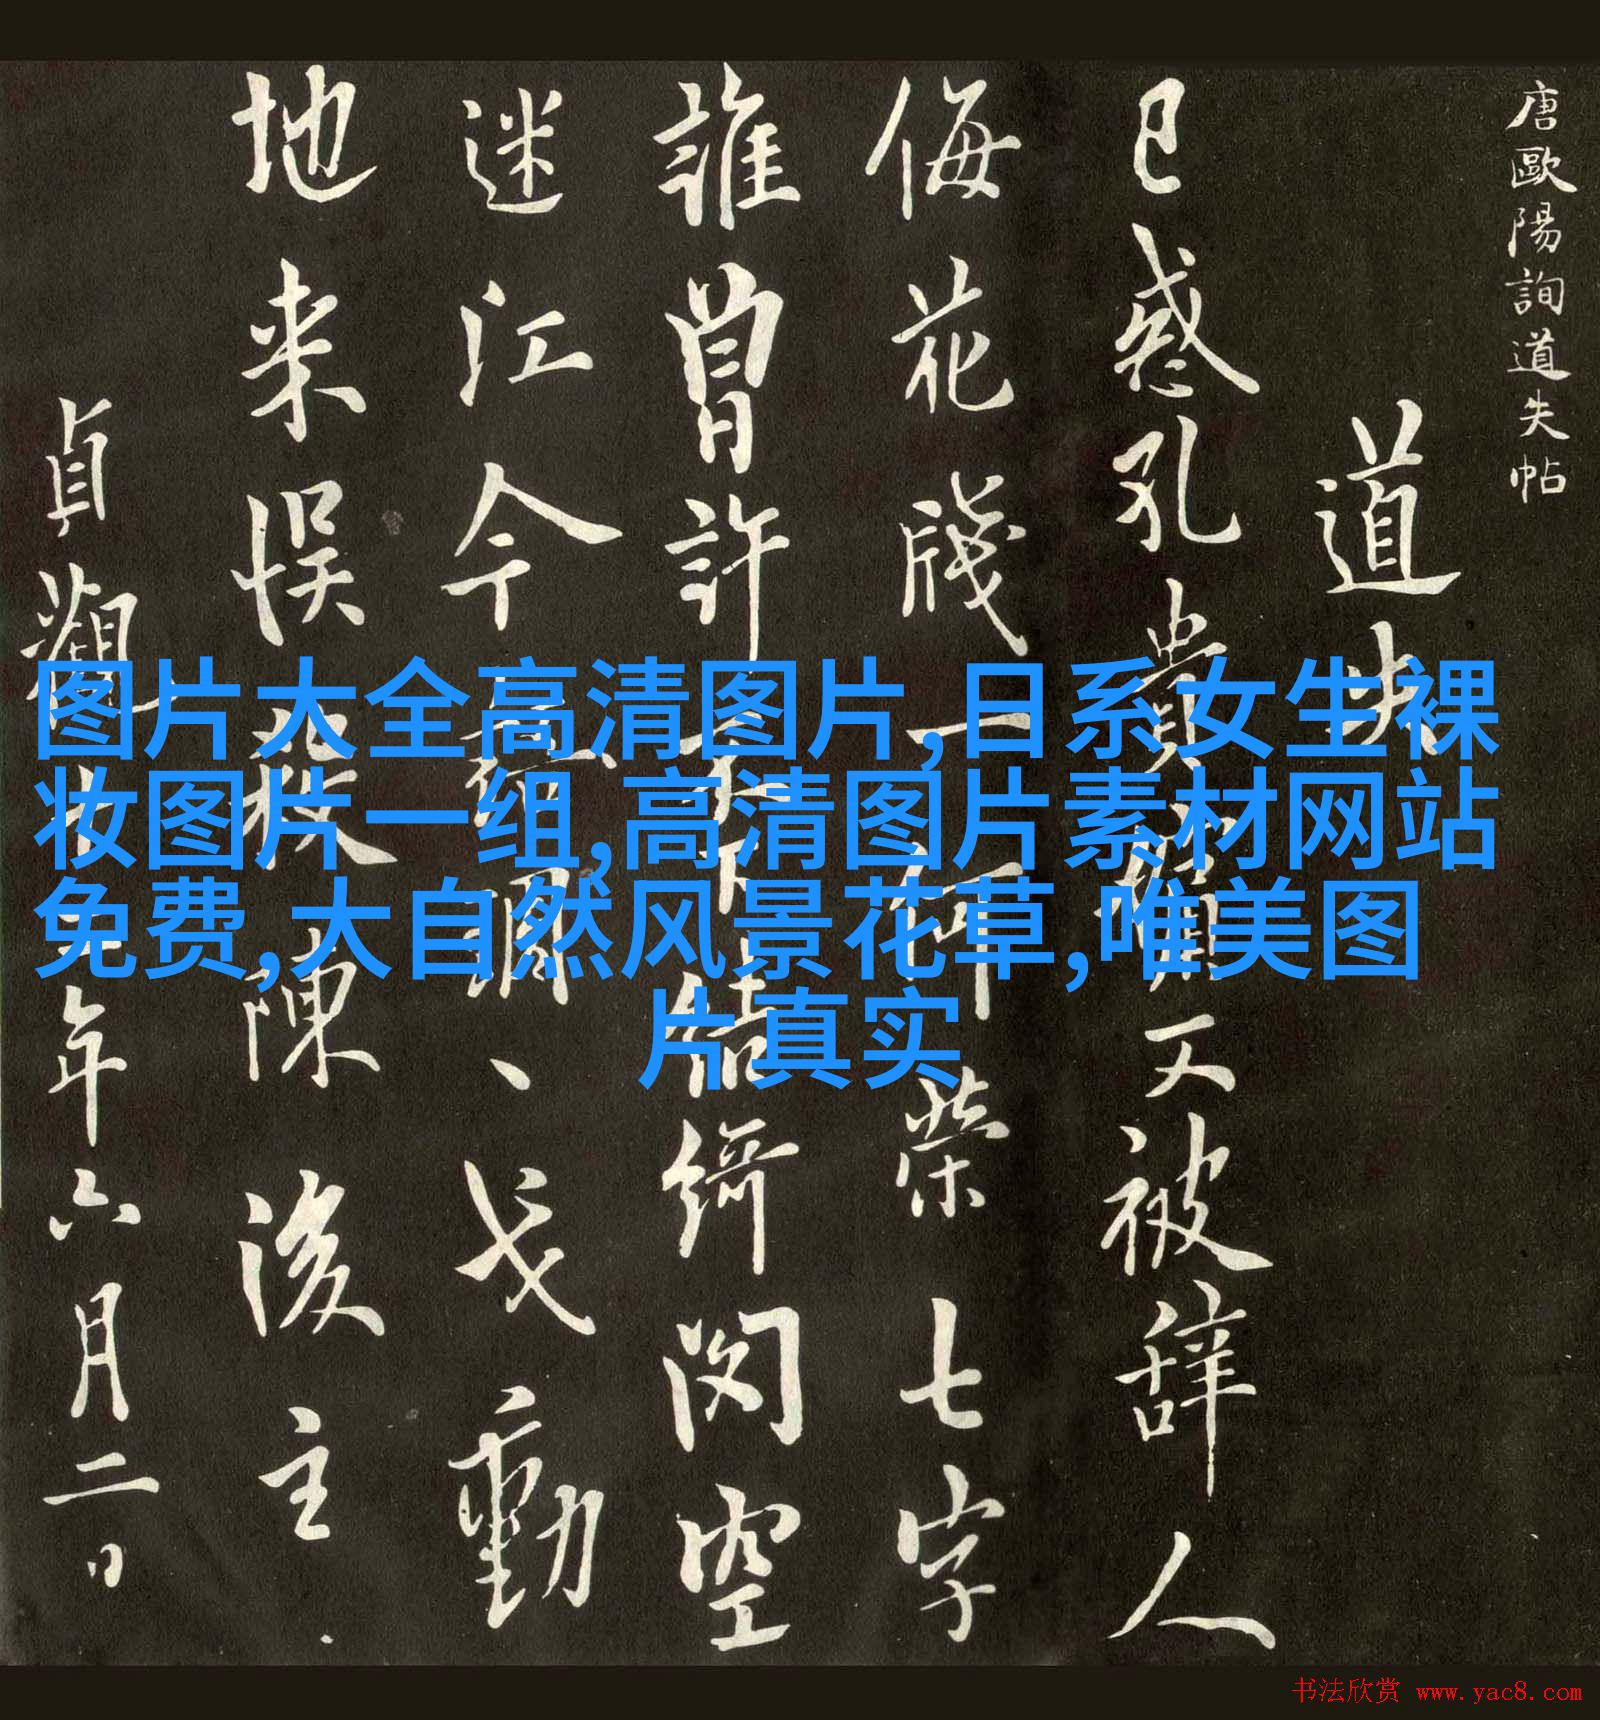 唐歐陽詢道失帖
道失
已惑孔貴又被辞人
侮花牋一何荣七字
誰曾許結綺閃空
迷江令調、戈動
地来悮殺陳後主
貞觀年六月二日
图片大全高清图片,日系女生裸
妆图片一组,高清图片素材网站
免费,大自然风景花草,唯美图
片真实
书法欣赏 www.yac8.com